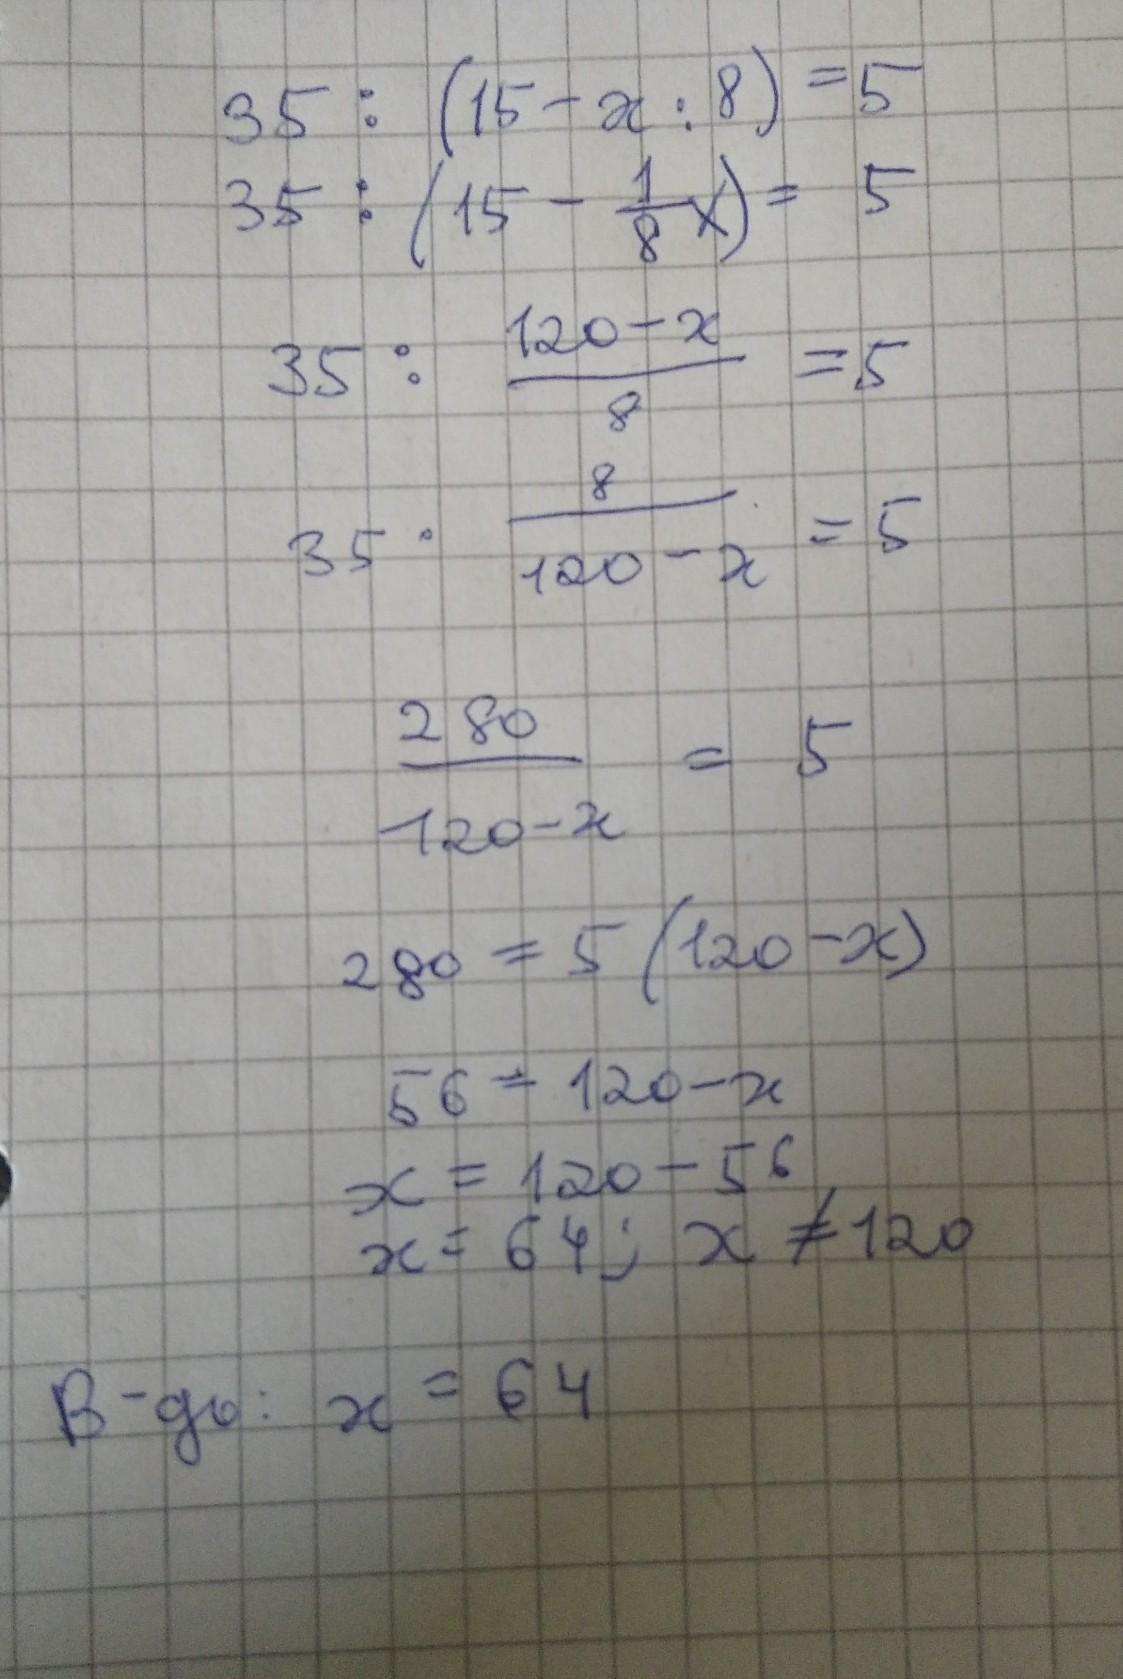 35 : (15 - x : 8) = 5
35 : (15 - 1/8 x) = 5
35 : (120 - x)/8 = 5
35 · 8/(120 - x) = 5
280/(120 - x) = 5
280 = 5 (120 - x)
56 = 120 - x
x = 120 - 56
x = 64; x ≠ 120
В-дь: x = 64